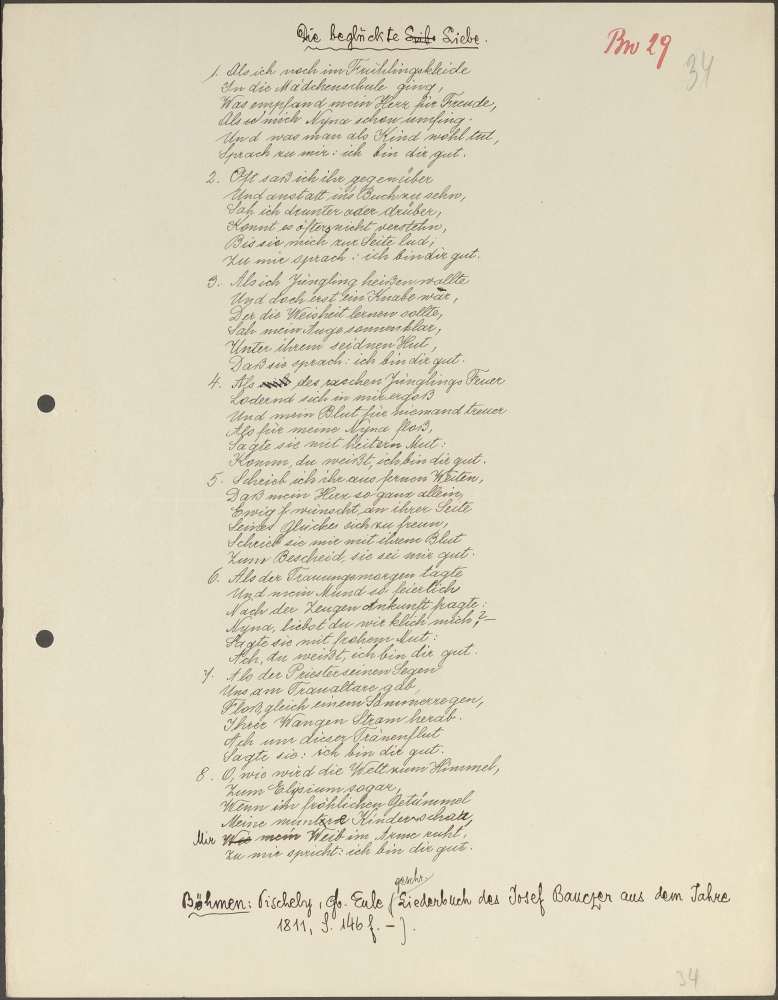 Die beglückte Liebe.
Bw 29
34
1. Als ich noch im Frühlingskleide
In die Mädchenschule ging,
Was empfand mein Herz für Freude,
Als so mich Nyna schon umfing.
Und was man als Kind wohl tut,
Sprach zu mir: ich bin dir gut.
2. Oft saß ich ihr gegenüber
Und anstatt ins Buch zu sehn,
Sah ich drunter oder drüber,
Konnt es öfters nicht verstehn,
Bis sie mich zur Seite lud,
Zu mir sprach: ich bin dir gut.
3. Als ich Jüngling heißen wollte
Und doch erst ein Knabe war,
Der die Weisheit lernen sollte,
Sah mein Auge sonnenklar,
Unter ihrem seidnen Hut,
Daß sie sprach: ich bin dir gut.
4. Als des raschen Jünglings Feuer
Lodernd sich in mir ergoß
Und mein Blut für niemand treuer
Als für meine Nyna floß,
Sagte sie mit heiterm Mut:
Komm, du weißt, ich bin dir gut.
5. Schrieb ich ihr aus fernen Weiten,
Daß mein Herz so ganz allein,
Ewig wünscht, an ihrer Seite
Seines Glückes sich zu freun,
Schrieb sie mir mit ihrem Blut
Zum Bescheid, sie sei mir gut.
6. Als der Trauungsmorgen tagte
Und mein Mund so feierlich
Nach der Zeugen Ankunft fragte:
Nyna, liebst du wirklich mich? –
Sagte sie mit frohem Mut:
Ach, du weißt, ich bin dir gut.
7. Als der Priester seinen Segen
Uns am Traualtare gab,
Floß gleich einem Sommerregen,
Ihrer Wangen Strom herab.
Ach um dieser Tränenflut
Sagte sie: ich bin dir gut.
8. O, wie wird die Welt zum Himmel,
Zum Elysium sogar,
Wenn im fröhlichen Getümmel
Meine muntere Kinderschar,
Mir mein Weib im Arme ruht,
Zu mir spricht: ich bin dir gut.
Böhmen: Pischely, gb. Eule (geschr. Liederbuch des Josef Bauczer aus dem Jahre
1811, S. 146 f. –).
34